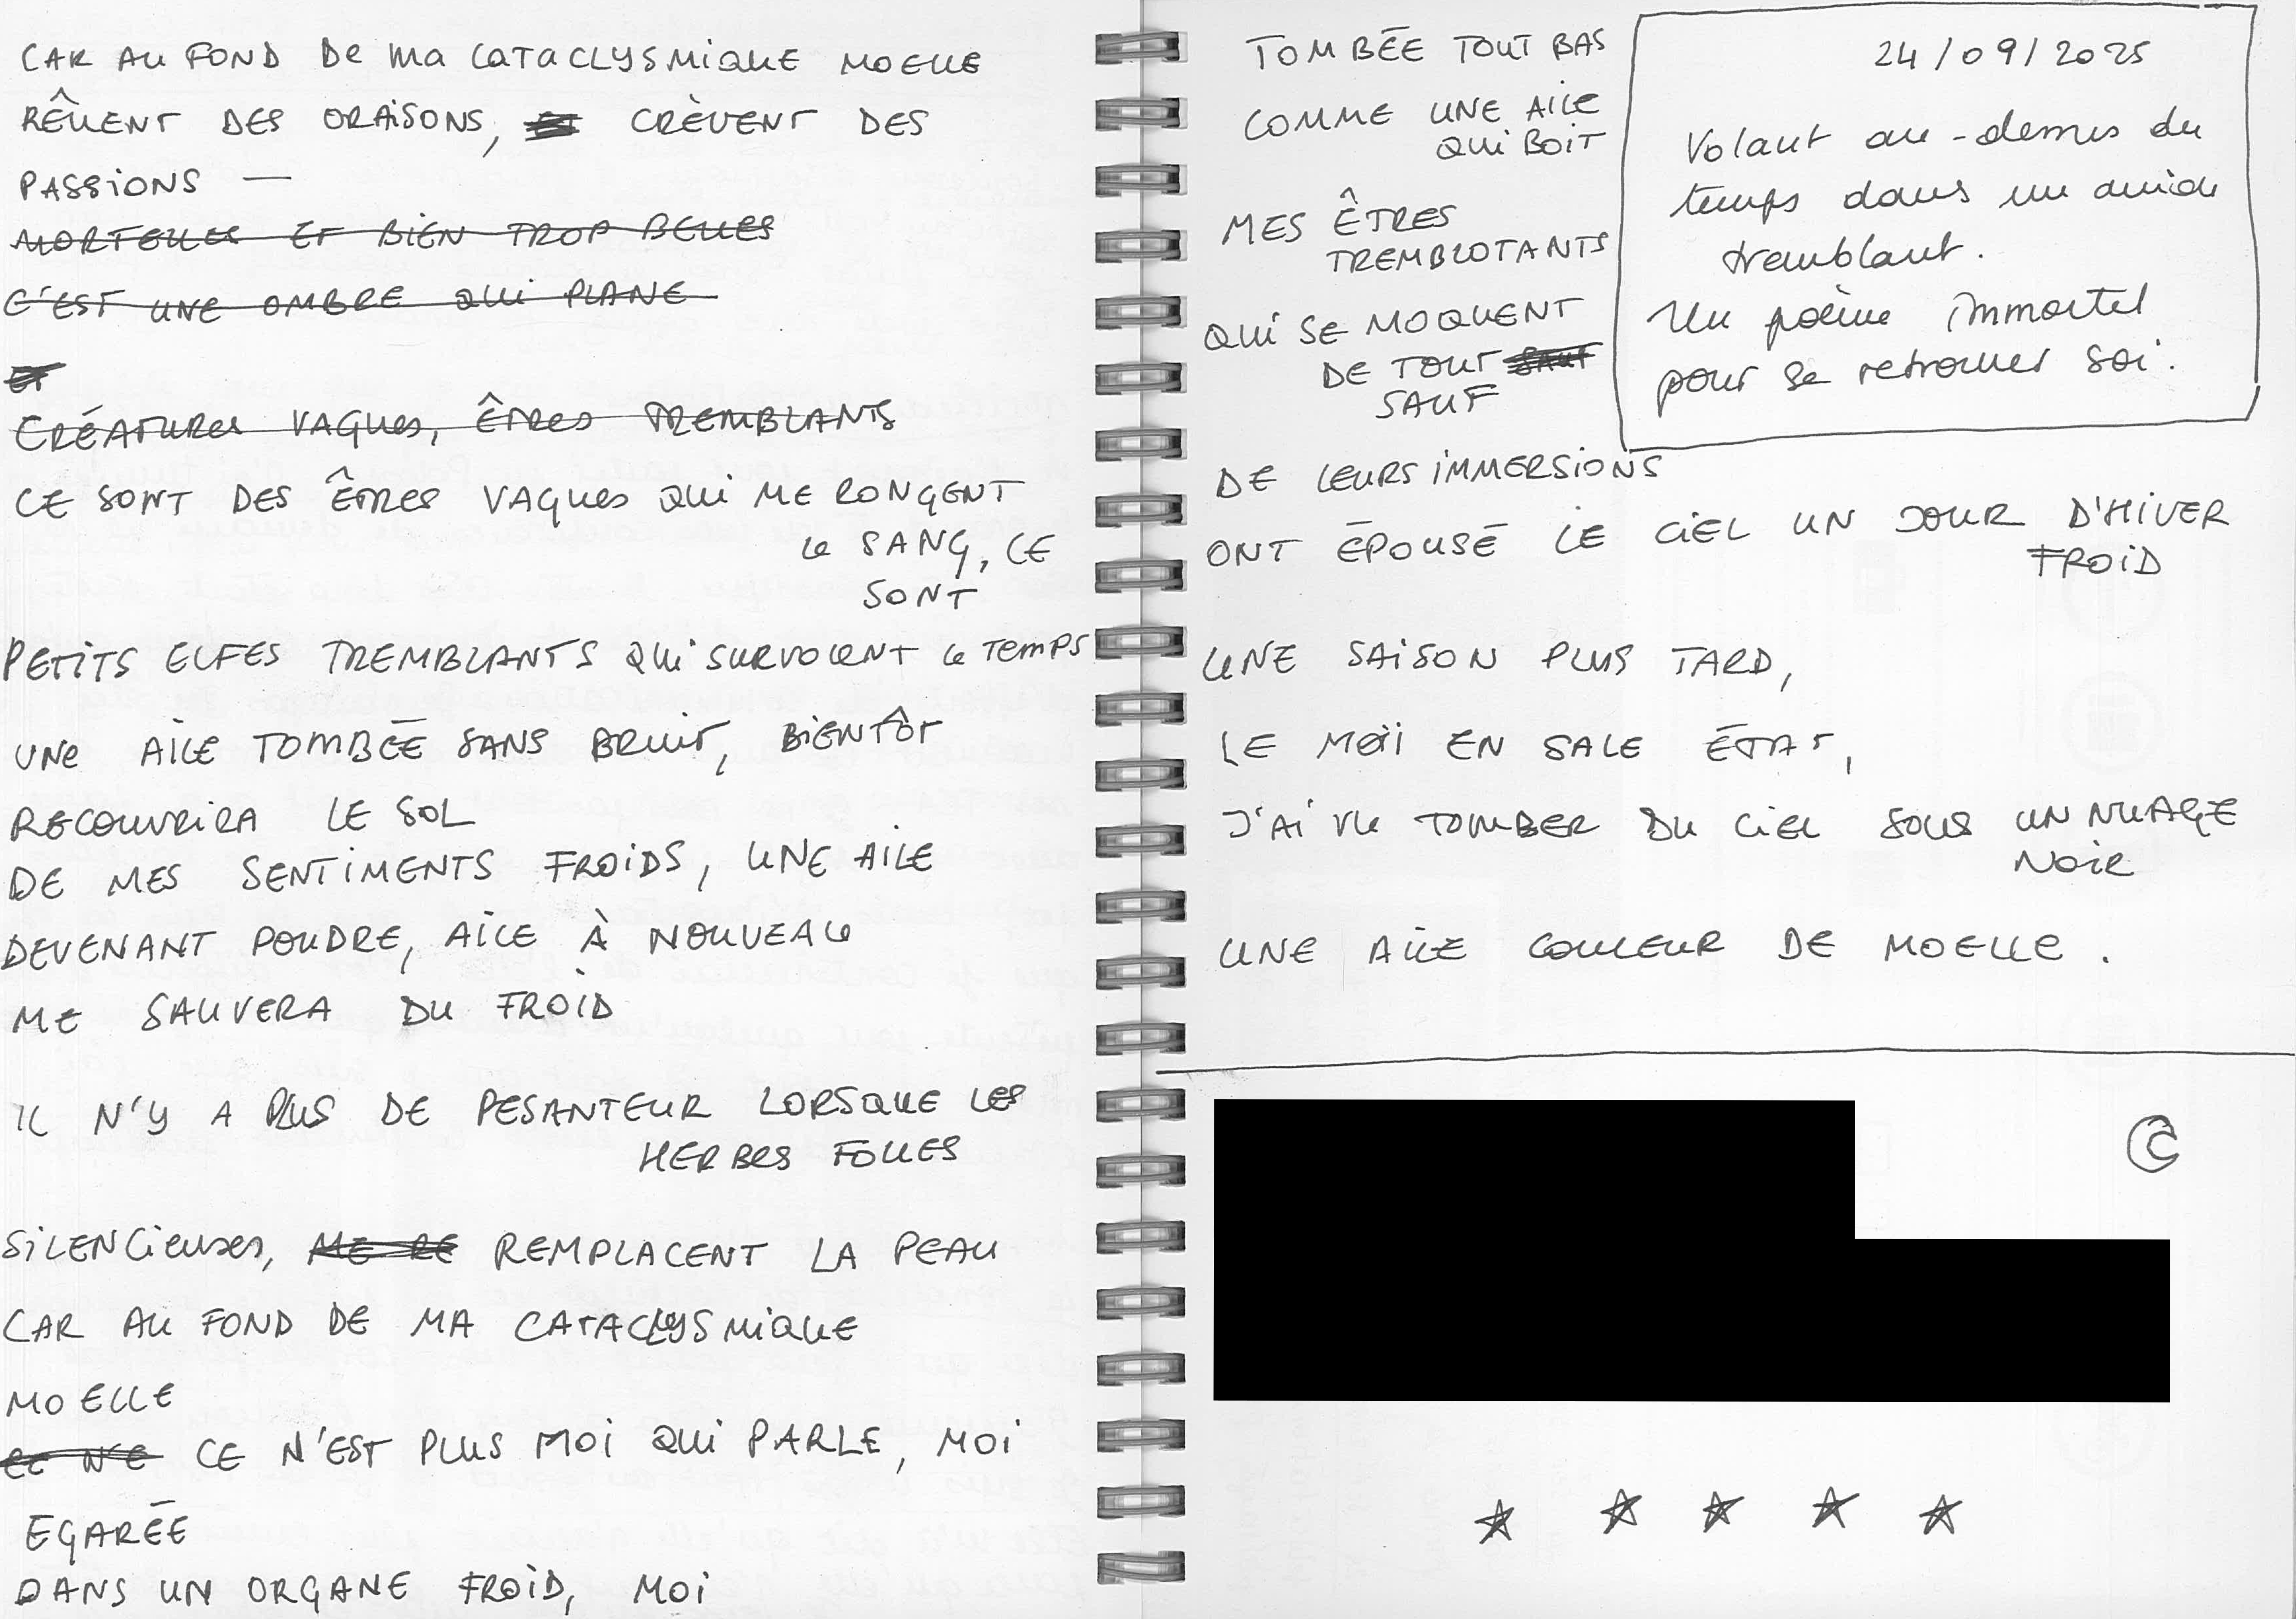 CAR AU FOND DE MA CATACLYSMIQUE MOELLE
RÊVENT DES ORAISONS, CRÈVENT DES
PASSIONS —
MORTELLES ET BIEN TROP BELLES
C'EST UNE OMBRE QUI PLANE
ET
CRÉATURES VAGUES, ÊTRES TREMBLANTS
CE SONT DES ÊTRES VAGUES QUI ME RONGENT
LE SANG, CE
SONT
PETITS ELFES TREMBLANTS QUI SURVOLENT LE TEMPS
UNE AILE TOMBÉE SANS BRUIT, BIENTÔT
RECOUVRIRA LE SOL
DE MES SENTIMENTS FROIDS, UNE AILE
DEVENANT POUDRE, AILE À NOUVEAU
ME SAUVERA DU FROID
IL N'Y A PLUS DE PESANTEUR LORSQUE LES
HERBES FOLLES
SILENCIEUSES, ME RE REMPLACENT LA PEAU
CAR AU FOND DE MA CATACLYSMIQUE
MOELLE
CE N'E CE N'EST PLUS MOI QUI PARLE, MOI
EGARÉE
DANS UN ORGANE FROID, MOI
TOMBÉE TOUT BAS
COMME UNE AILE
QUI BOIT
MES ÊTRES
TREMBLOTANTS
QUI SE MOQUENT
DE TOUT SAUF
SAUF
DE LEURS IMMERSIONS
ONT ÉPOUSÉ LE CIEL UN JOUR D'HIVER
FROID
UNE SAISON PLUS TARD,
LE MOI EN SALE ÉTAT,
J'AI VU TOMBER DU CIEL SOUS UN NUAGE
NOIR
UNE AILE COULEUR DE MOELLE.
24/09/2025
Volant au-dessus du
temps dans un
tremblant.
Un poème immortel
pour se retrouver soi.
C